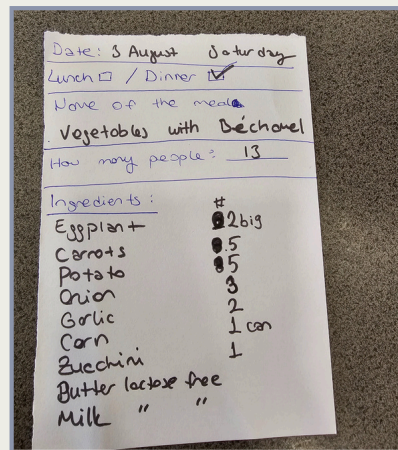 Date: 3 August Saturday
Lunch ☐ / Dinner ☑
Name of the meal
Vegetables with Béchamel
How many people: 13
Ingredients: #
Eggplant 2 big
Carrots 5
Potato 5
Onion 3
Garlic 2
Corn 1 can
Zucchini 1
Butter lactose free
Milk " "